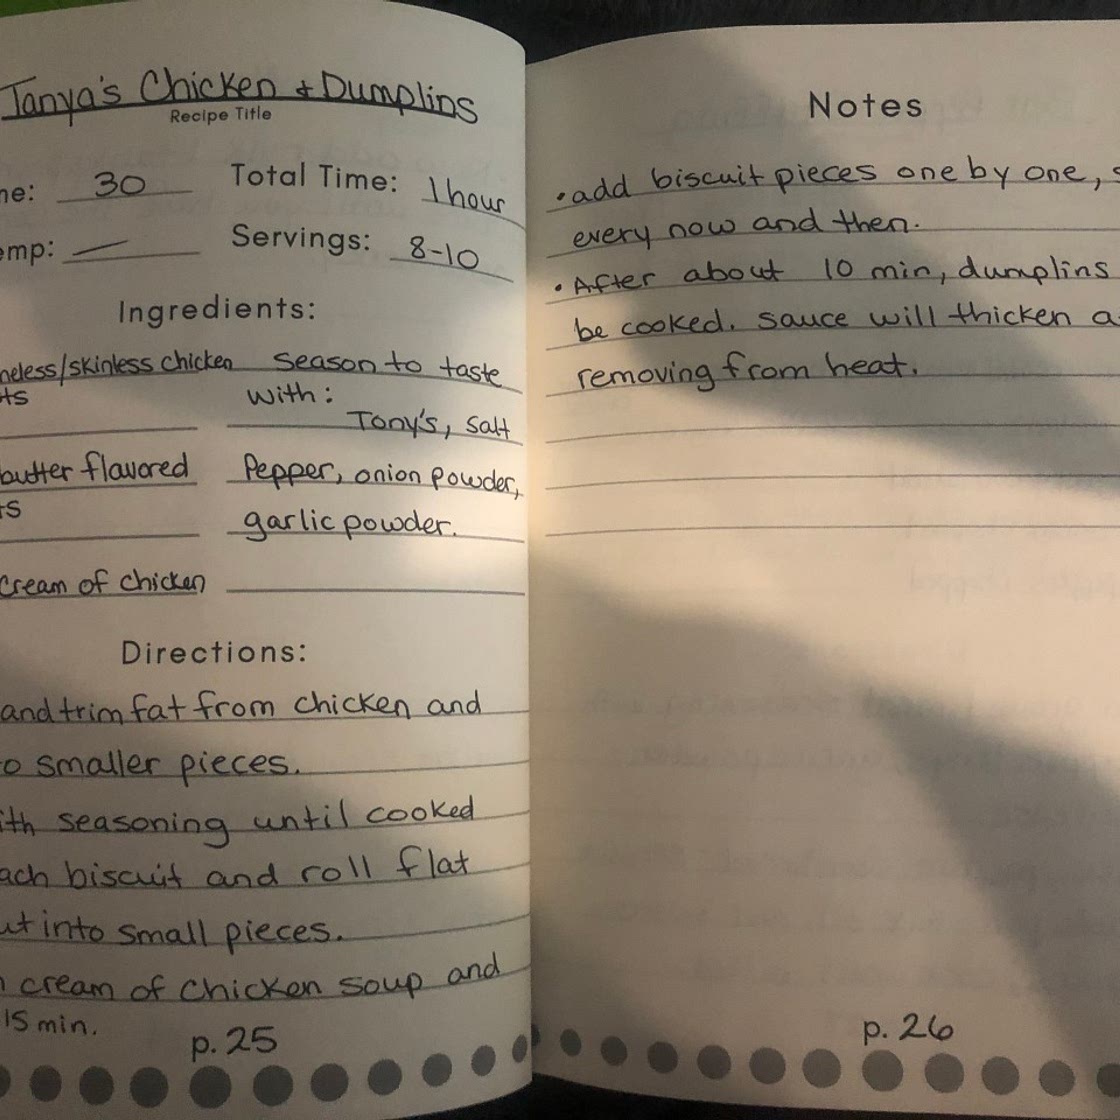 Tanya's Chicken & Dumplins
Recipe Title
me: 30 Total Time: 1 hour
emp: — Servings: 8-10
Ingredients:
neless/skinless chicken
ts
butter flavored
ts
cream of chicken
season to taste
with:
Tony's, salt
Pepper, onion powder,
garlic powder.
Directions:
and trim fat from chicken and
o smaller pieces.
ith seasoning until cooked
ach biscuit and roll flat
ut into small pieces.
cream of chicken soup and
15 min.
p. 25
Notes
• add biscuit pieces one by one, s
every now and then.
• After about 10 min, dumplins
be cooked. sauce will thicken a
removing from heat.
p. 26